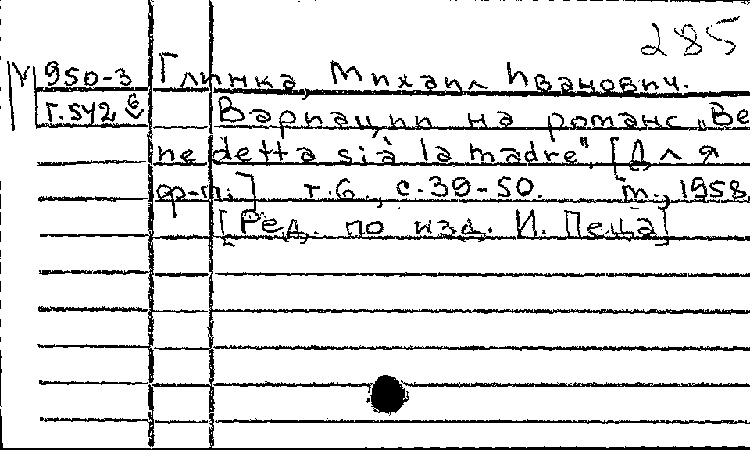 285
М 950-3 Глинка, Михаил Иванович.
Г.542 Вариации на романс „Be
ne detta sià la madre", [Для
ф-п.] т.6., с.39-50. М., 1958.
[Ред. по изд. И. Пеца]